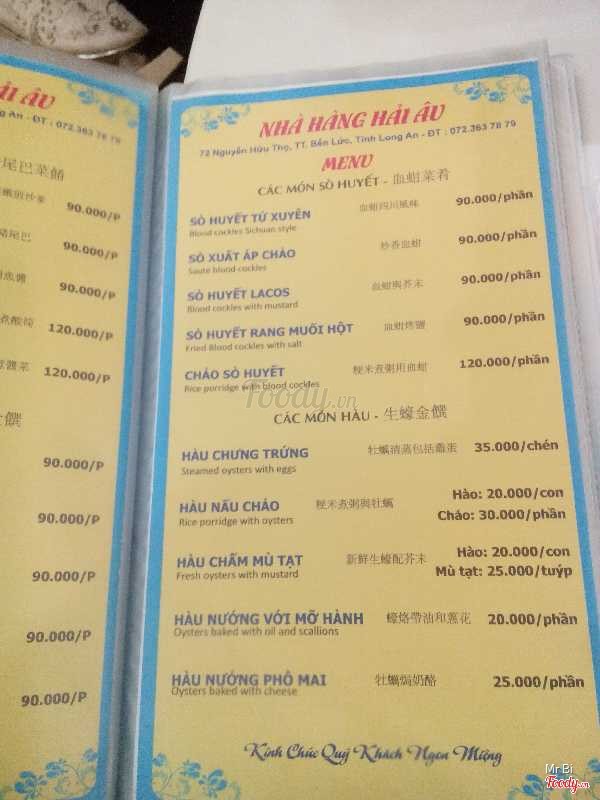 ẢI ÂU
ng An - ĐT : 072.363 78 79
尾巴菜餚
90.000/P
90.000/P
90.000/P
120.000/P
120.000/P
90.000/P
90.000/P
90.000/P
90.000/P
90.000/P
NHÀ HÀNG HẢI ÂU
72 Nguyễn Hữu Thọ, TT. Bến Lức, Tỉnh Long An - ĐT : 072.363 78 79
MENU
CÁC MÓN SÒ HUYẾT - 血蚶菜肴
SÒ HUYẾT TỨ XUYÊN 血蚶四川風味 90.000/phần
Blood cockles Sichuan style
SÒ XUẤT ÁP CHẢO 炒香血蚶 90.000/phần
Saute blood cockles
SÒ HUYẾT LACOS 血蚶與芥末 90.000/phần
Blood cockles with mustard
SÒ HUYẾT RANG MUỐI HỘT 血蚶烤鹽 90.000/phần
Fried Blood cockles with salt
CHÁO SÒ HUYẾT 粳米煮粥用血蚶 120.000/phần
Rice porridge with blood cockles
CÁC MÓN HÀU - 生蠔金饌
HÀU CHƯNG TRỨNG 牡蠣清蒸包括雞蛋 35.000/chén
Steamed oysters with eggs
HÀU NẤU CHÁO 粳米煮粥與牡蠣 Hào: 20.000/con
Rice porridge with oysters Cháo: 30.000/phần
HÀU CHẤM MÙ TẠT 新鮮生蠔配芥末 Hào: 20.000/con
Fresh oysters with mustard Mù tạt: 25.000/tuýp
HÀU NƯỚNG VỚI MỠ HÀNH 蠔烙帶油和蔥花 20.000/phần
Oysters baked with oil and scallions
HÀU NƯỚNG PHÔ MAI 牡蠣焗奶酪 25.000/phần
Oysters baked with cheese
Kính Chúc Quý Khách Ngon Miệng
Foody.vn
Mr Bi
Foody.vn